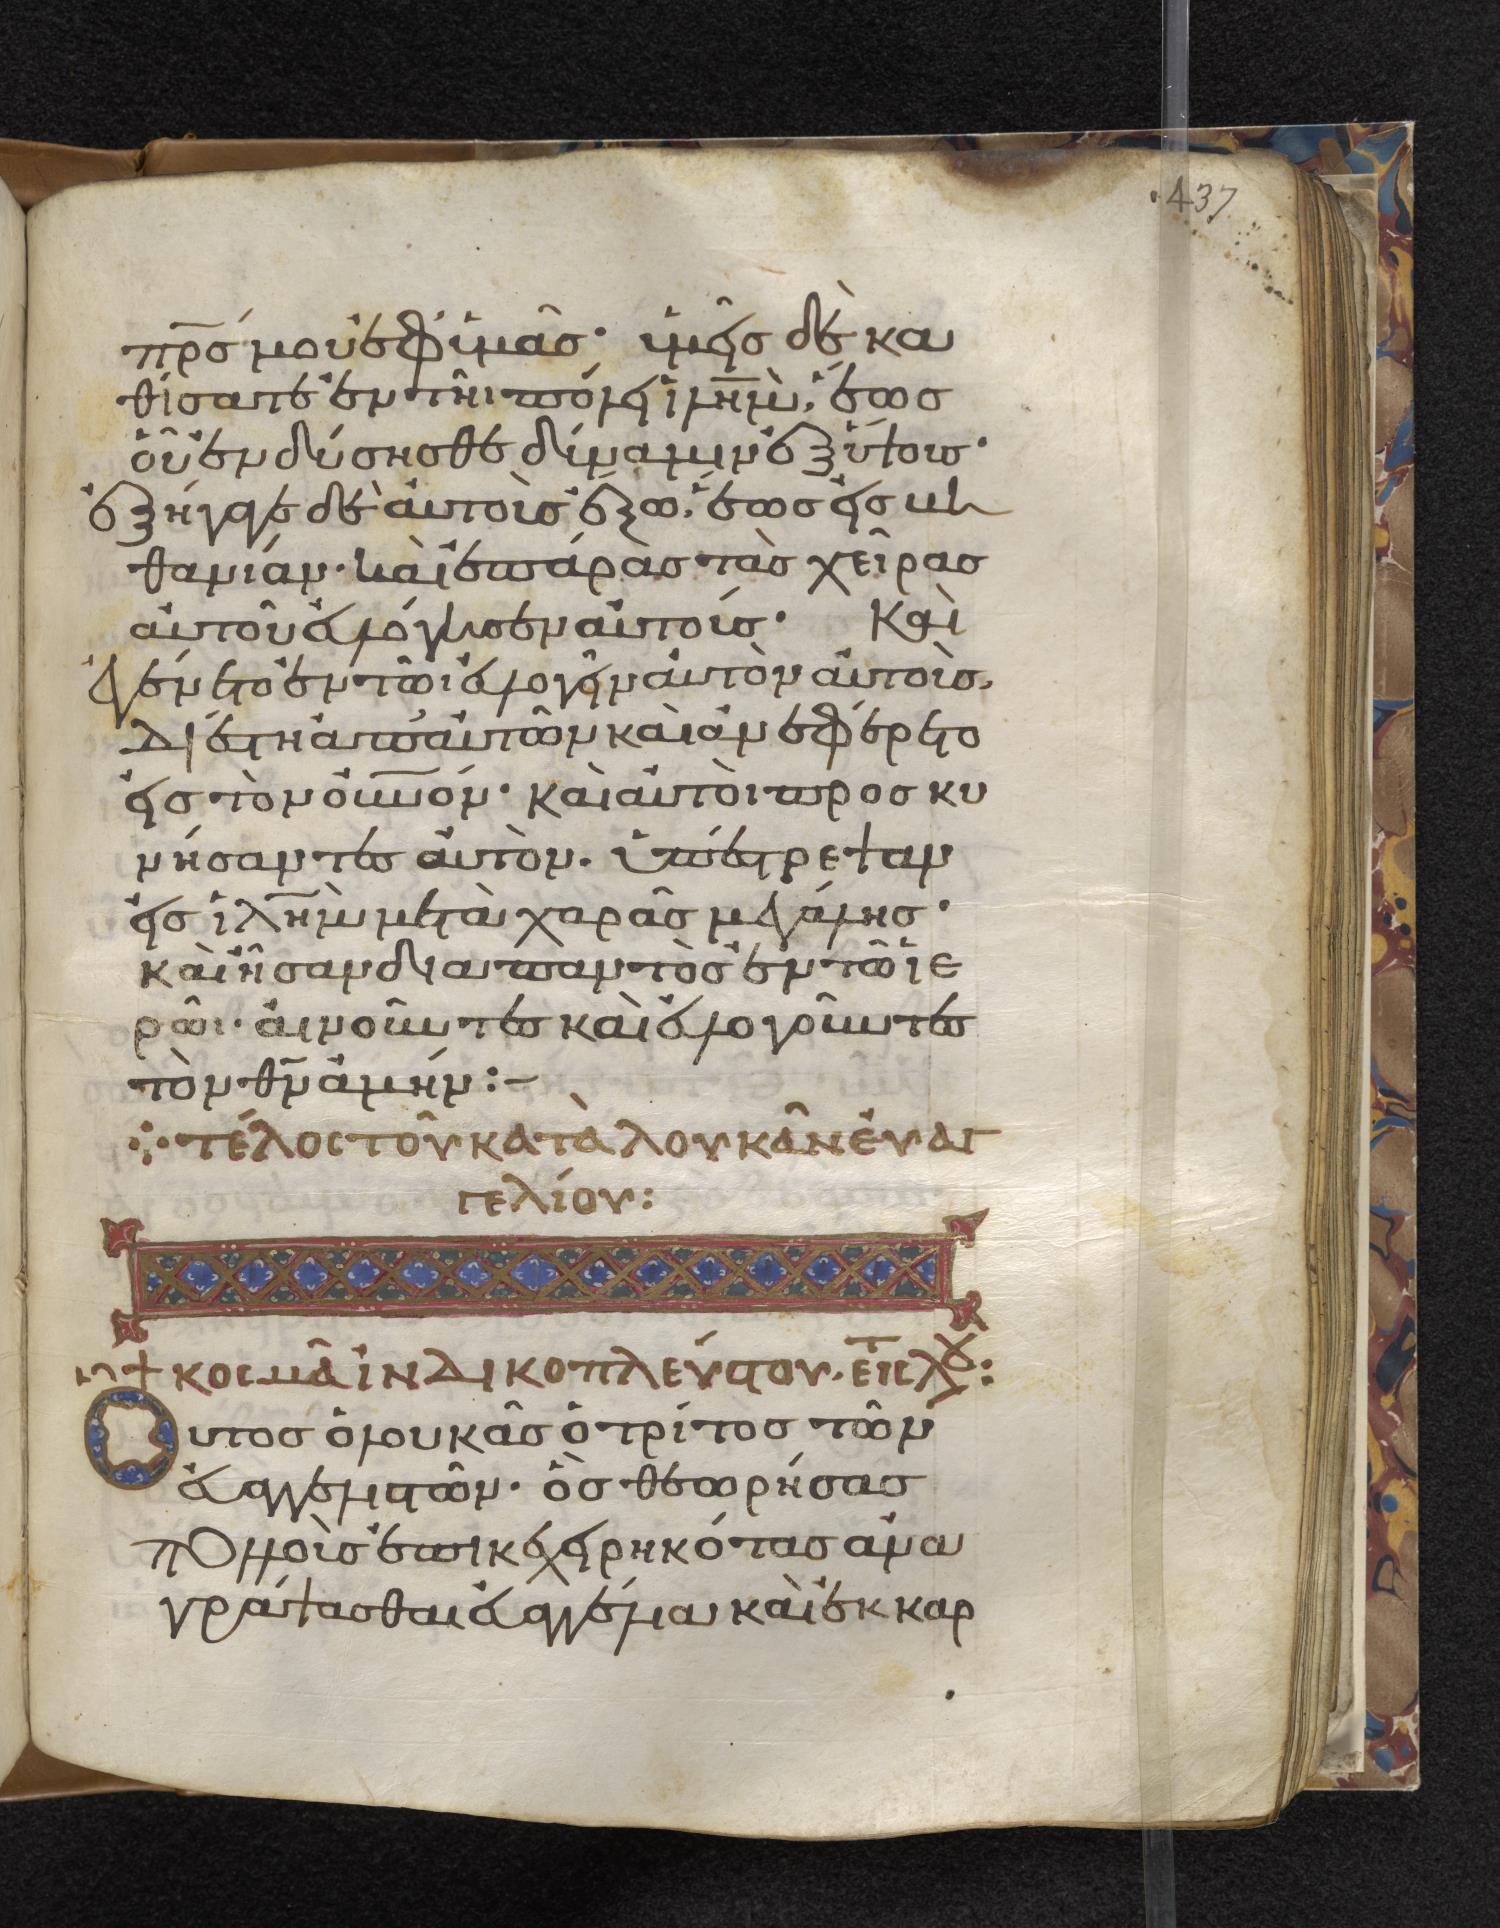 437
π̅ρ̅ς μου ἐφ ὑμᾶς· ὑμεῖς δὲ κα
θίσατε ἐν τῆι πόλει ἰλ̅η̅μ̀, ἕως
οὗ ἐνδύσησθε δύναμιν ἐξ ὕψους·
ἐξήγαγε δὲ ἀυτοὺς ἔξω, ἕως εἰς βη
θανίαν· καὶ ἐπάρας τὰς χεῖρας
ἀυτοῦ ἐυλόγησεν ἀυτούς· Καὶ
ἐγένετο ἐν τῶι ἐυλογεῖν ἀυτὸν ἀυτοὺς,
διέστη ἀπ ἀυτῶν καὶ ἀνεφέρετο
εἰς τὸν ο̅υ̅ν̅ό̅ν· καὶ ἀυτοὶ προσκυ
νήσαντες ἀυτὸν. ὑπέστρεψαν
εἰς ἰλ̅η̅μ̀ μετὰ χαρᾶς μεγάλης·
καὶ ἦσαν διαπαντὸς ἐν τῶ ἱε
ρῶι· ἀινοῦντες καὶ ἐυλογοῦντες
τὸν θ̅ν̅ ἀμήν:–
τέλος τοῦ κατὰ λουκᾶν ἐυαγ
γελίου:
+ κοσμᾶ ἰνδικοπλεύστου.
Ουτος ὁ λουκᾶς ὁ τρίτος τῶν
ἐυαγγελιστῶν· ὃς θεωρήσας
πολλοὺς ἐπικεχειρηκότας ἀνα
γράψασθαι ἐυαγγέλια καὶ ἐκ καρ